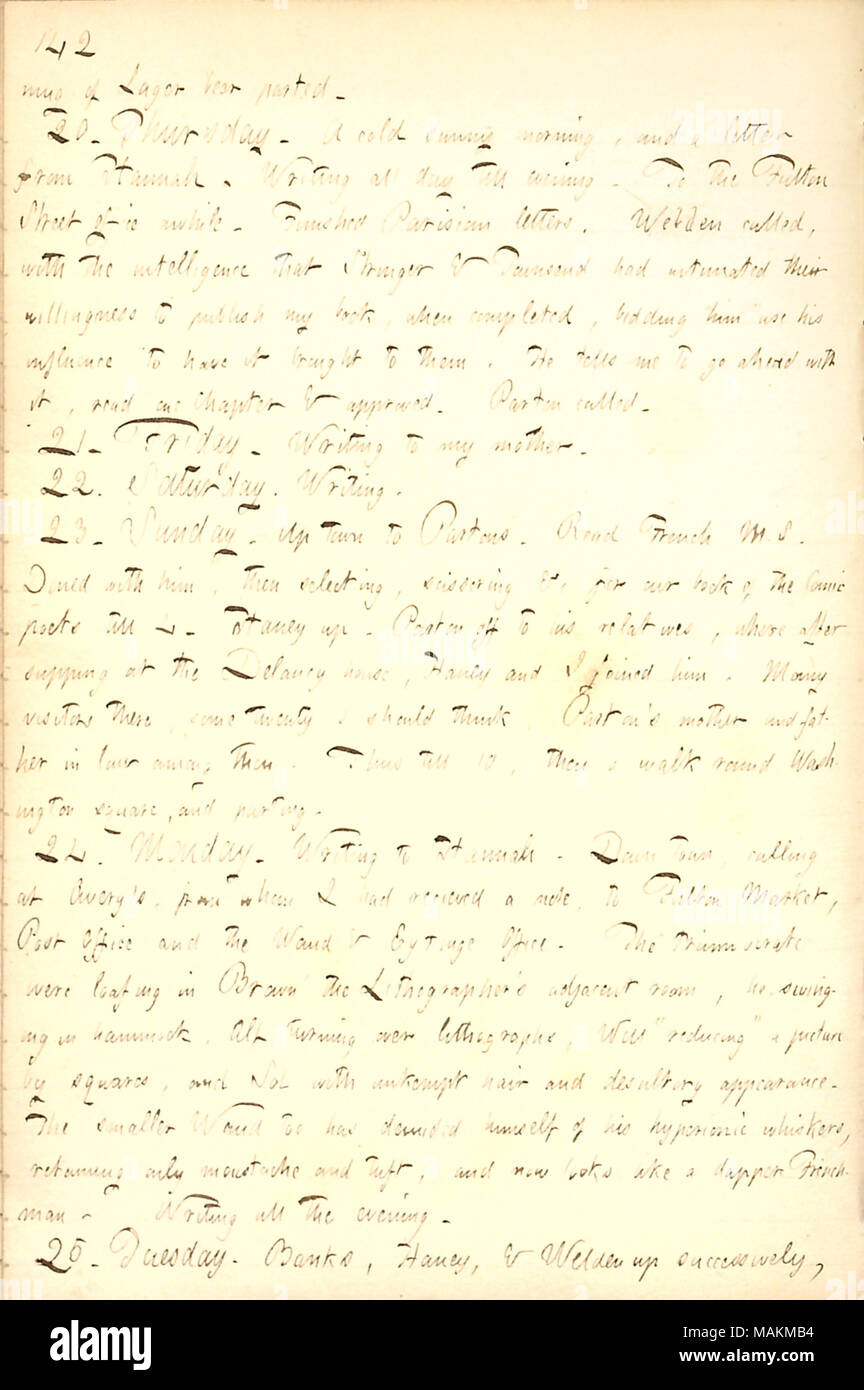 142
ning of Lager beer parted.
20. Thursday. A cold sunny morning, and a letter
from Hannah. Writing all day till evening. To the Fulton
Street office awhile. Finished Parisian letters. Welden called,
with the intelligence that Stringer & Townsend had intimated their
willingness to publish my book, when completed, bidding him "use his
influence" to have it brought to them. He tells me to go ahead with
it, read one Chapter & approved. Parton called.
21. Friday. Writing to my mother.
22. Saturday. Writing.
23. Sunday. Up town to Partons. Read French M.S.
Dined with him, then selecting, scissoring &c for our book of the Comic
poets till 4. Haney up. Parton off to his relatives, where after
supping at the Delancy house, Haney and I joined him. Many
visitors there, some twenty I should think, Parton's mother and fat-
her in law among them. Thus till 10, then a walk round Wash-
ington square, and parting.
24. Monday. Writing to Hannah. Down town, calling
at Avery's, from whom I had recieved a note, to Fulton Market,
Post Office and the Waud & Eytinge Office. The triumvirate
were loafing in Brown the Lithographer's adjacent room, he swing-
ing in hammock, Alf turning over lithographs, Will "reducing" a picture
by squares, and Sol with unkempt hair and desultory appearance.
The smaller Waud too has denuded himself of his hyperionic whiskers,
retaining only moustache and tuft, and now looks like a dapper French-
man. Writing all the evening.
25. Tuesday. Banks, Haney, & Welden up successively,
alamy
Image ID: MAKMB4
www.alamy.com